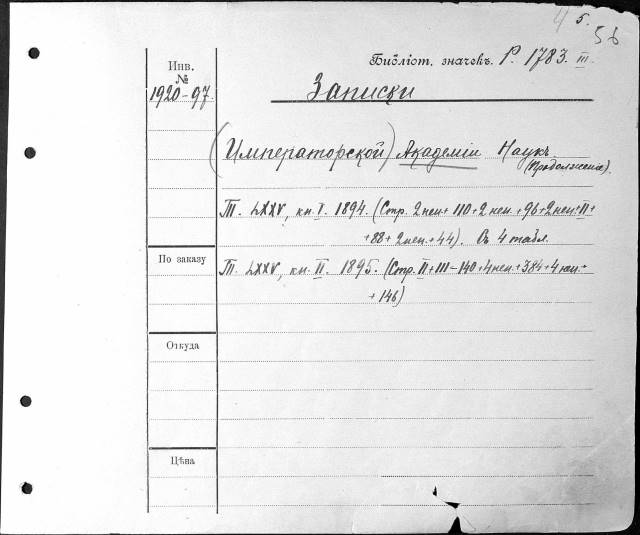 4 5.
56
Инв.
№
1920-97.
Библіот. значекъ. Р. 1783. III.
Записки
(Императорской) Академіи Наукъ
(Продолженіе).
Т. LXXV, кн. I. 1894. (Стр. 2 неи + 110 + 2 неи. + 96 + 2 неи. + II +
+ 88 + 2 неи. + 44). Съ 4 табл.
По заказу
Т. LXXV, кн. II. 1895. (Стр. II + III - 140 + 4 неи. + 384 + 4 неи. +
+ 146)
Откуда
Цѣна